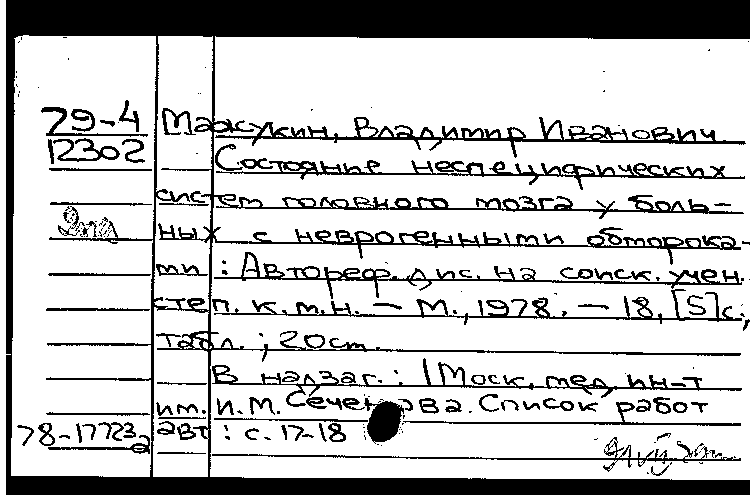 79-4 Мажукин, Владимир Иванович
12302 Состояние неспецифических
систем головного мозга у боль-
ных с неврогенными обморока-
ми : Автореф. дис. на соиск. учен.
степ. к. м. н. – М., 1978. – 18, [5] с.,
табл. ; 20 см.
В надзаг.: 1 Моск. мед. ин-т
им. И. М. Сеченова. Список работ
78-17723 авт : с. 17-18